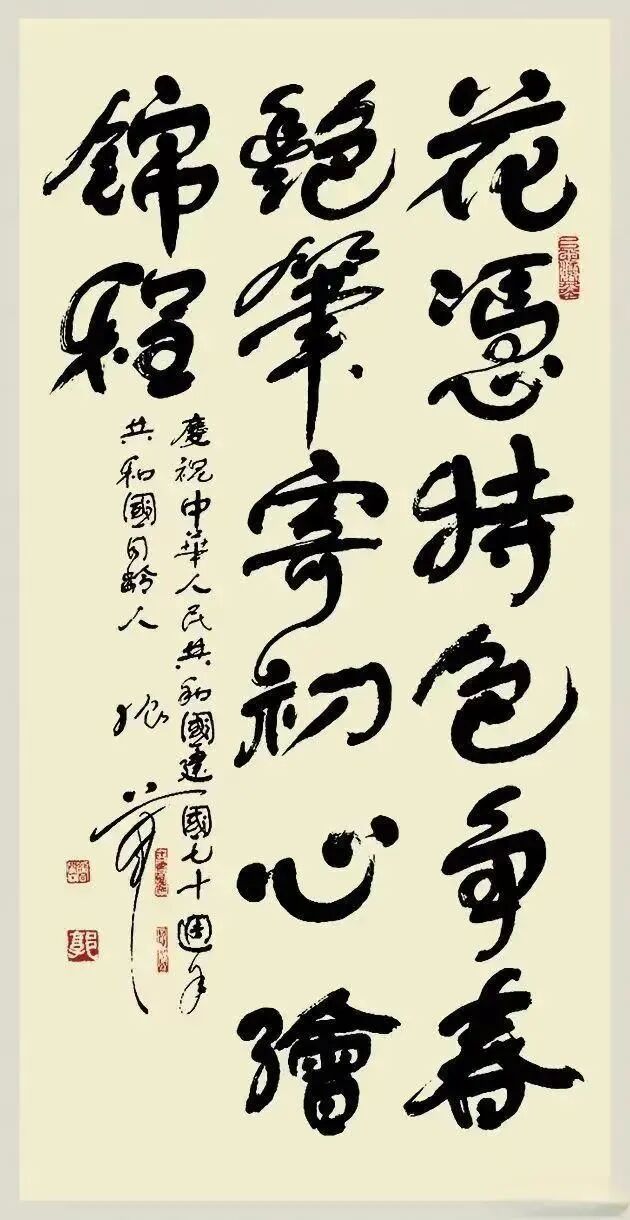 花憑特色争春
艷筆寄初心繪
錦程
慶祝中華人民共和國建國七十週年
共和國同齡人 振華
郭